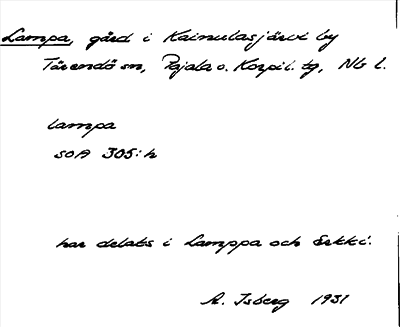 Lampa, gård i Kainulasjärvi by
Tärendö sn, Pajala o. Korpil. tg, Nb l.
lampa
SOA 305:h
har delats i Lamppa och Erkki.
A. Isberg 1931